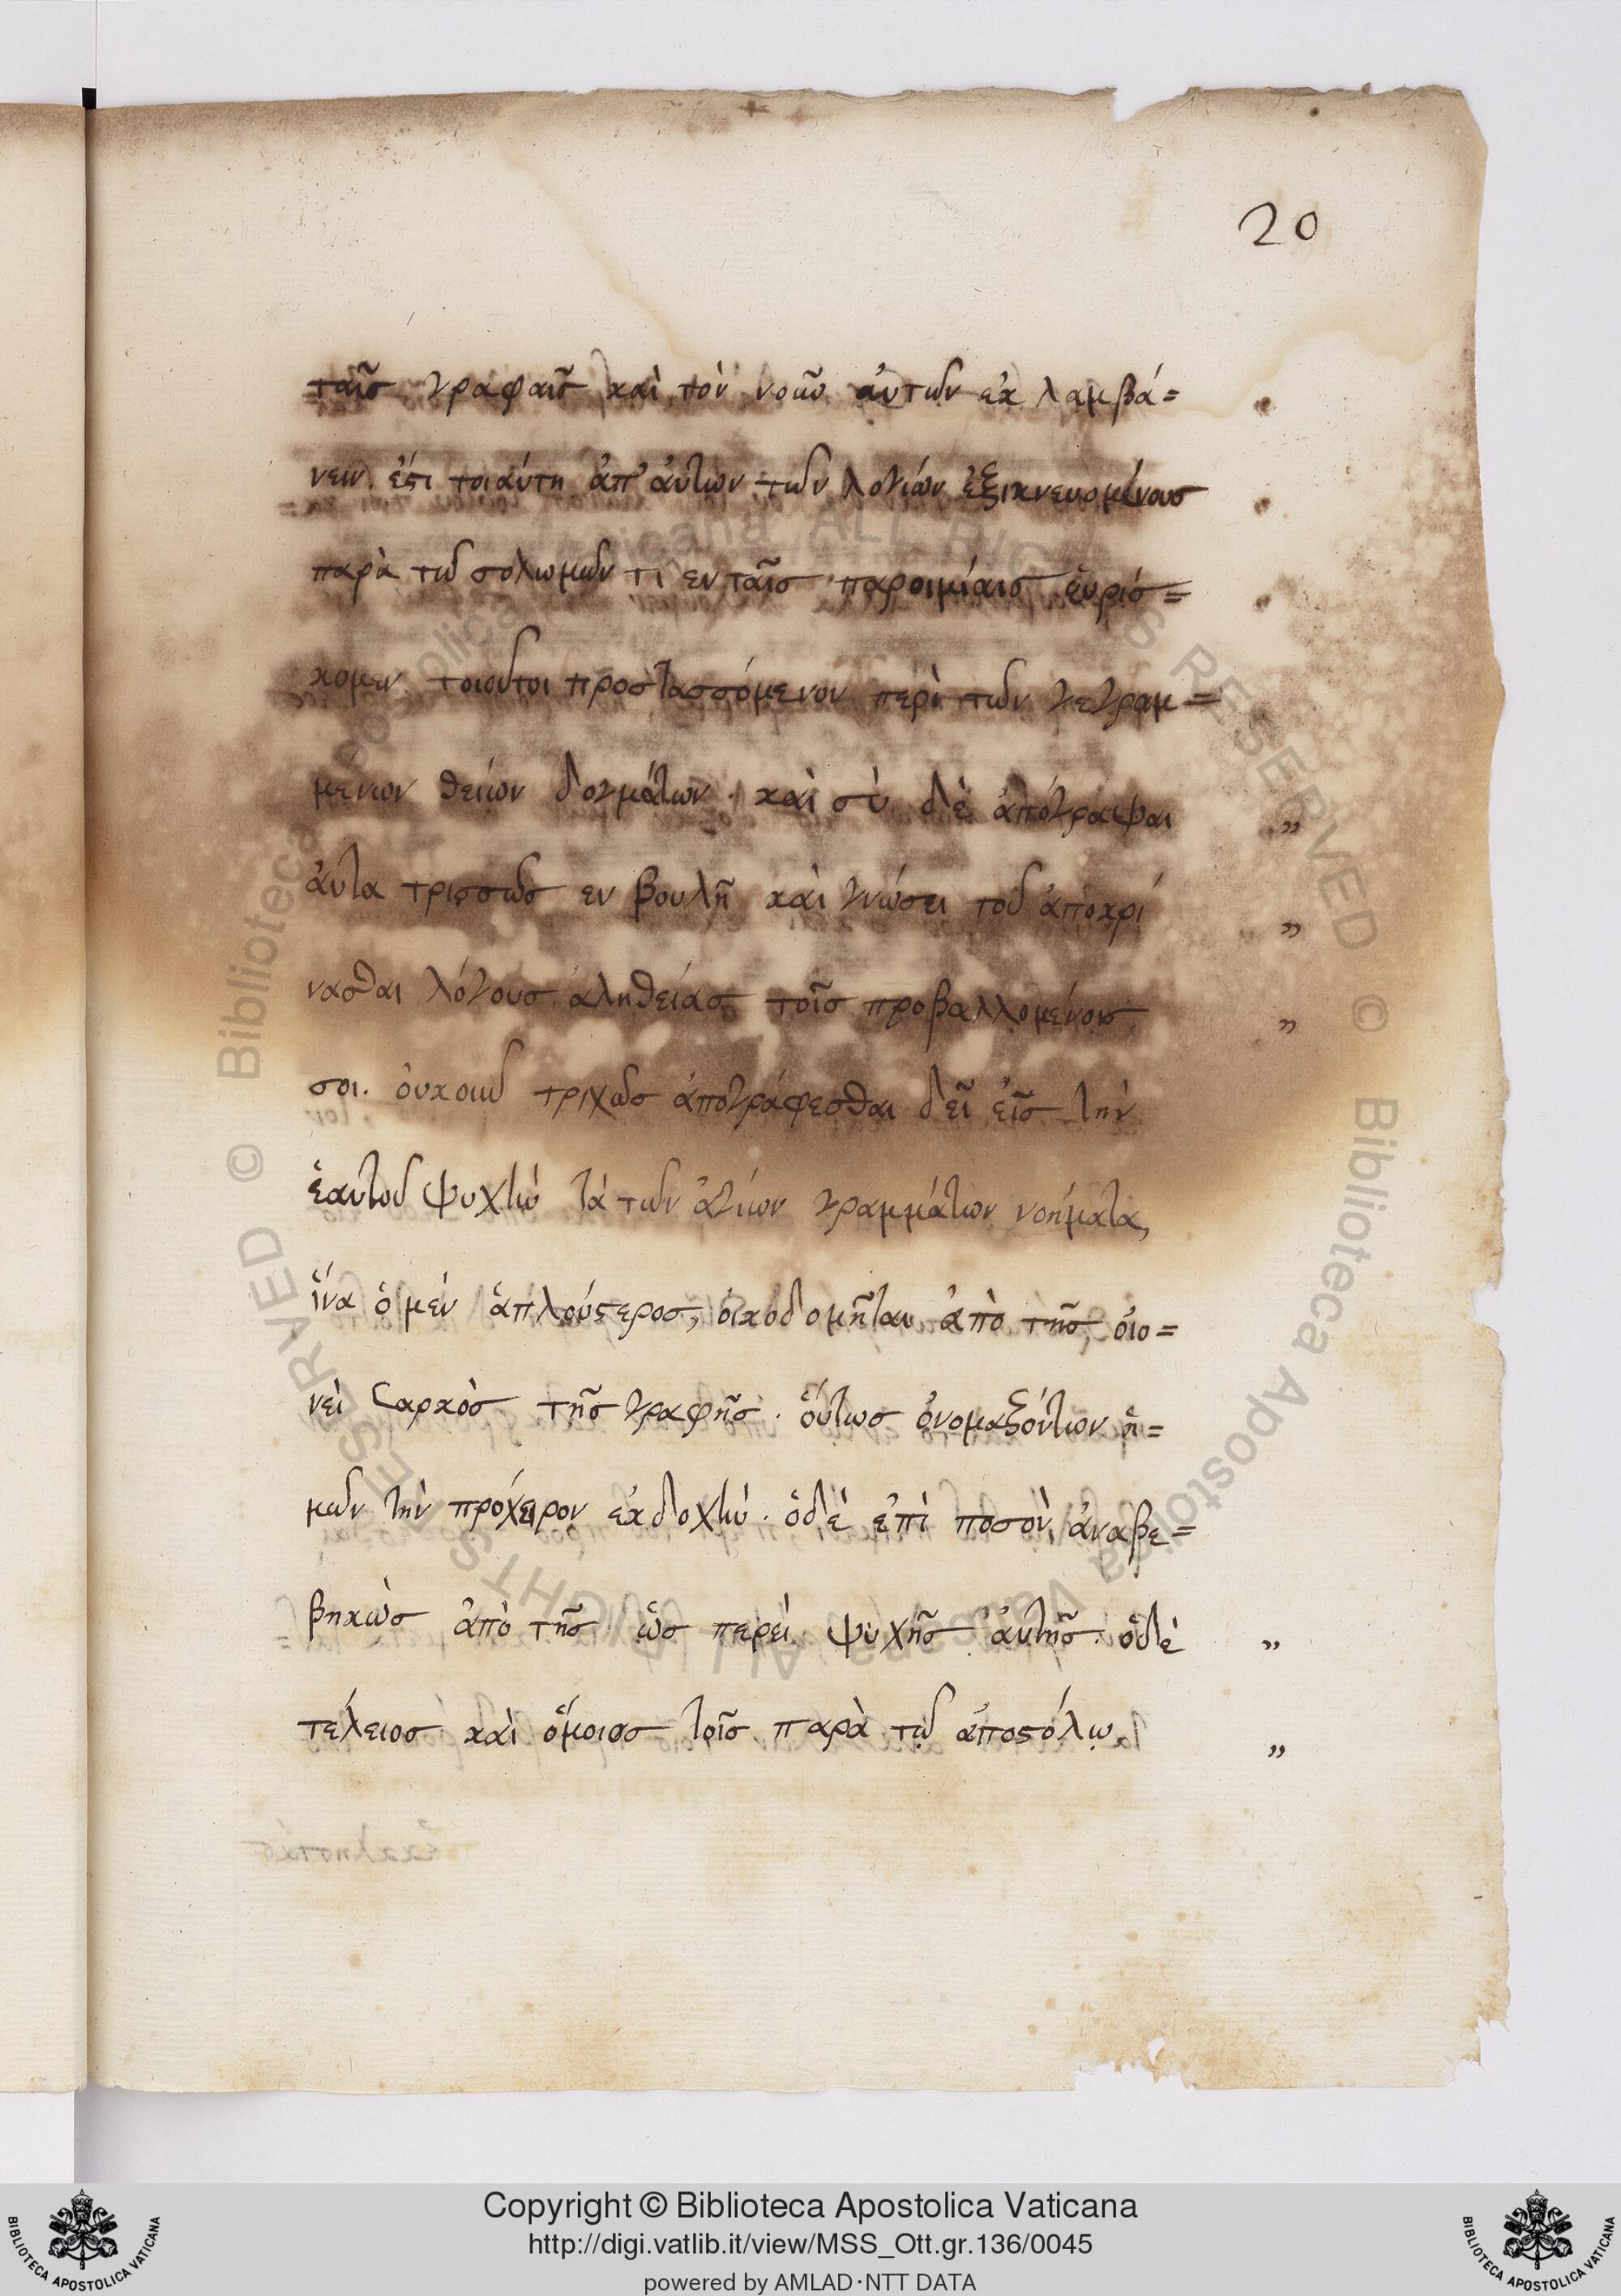 20
ταῖσ γραφαῖσ καὶ τὸν νοῦν ἀυτῶν ἐκ λαμβά=
νειν. ἐστι τοιάυτη ἀπ' ἀυτῶν τῶν λογίων ἐξιχνευομένουσ
παρὰ τῶ σολωμῶντι εν ταῖσ παροιμίαισ ἑυρίσ=
κομεν τοιοῦτοι προστασσόμενον περὶ τῶν γεγραμ=
μένων θείων δογμάτων. καὶ σὺ δὲ ἀπόγραψαι „
ἀυτα τρισσῶσ εν βουλῆ καὶ γνώσει τοῦ ἀποκρί „
νασθαι λόγουσ ἀληθείασ τοῖσ προβαλλομένοισ „
σοι. ὀυκοῦν τριχῶσ ἀπογράφεσθαι δεῖ εἰσ τὴν
ἑαυτοῦ ψυχὴν τὰ τῶν ἁγίων γραμμάτων νοήματα,
ἵνα ὁ μὲν ἁπλούστεροσ, ὀικοδομῆται ἀπὸ τῆσ ὁιο=
νεὶ σαρκὸσ τῆσ γραφῆσ. ὅυτωσ ὀνομαζόντων ἡ=
μῶν τὴν πρόχειρον ἐκδοχὴν. ὁδὲ ἐπὶ ποσὸν ἀναβε=
βηκὼσ ἀπὸ τῆσ ὡσ περεὶ ψυχῆσ ἀυτῆσ. ὁδὲ „
τέλειοσ καὶ ὅμοιοσ τοῖσ παρὰ τῶ ἀποστόλω „
Copyright © Biblioteca Apostolica Vaticana
http://digi.vatlib.it/view/MSS_Ott.gr.136/0045
powered by AMLAD·NTT DATA
BIBLIOTECA APOSTOLICA VATICANA
BIBLIOTECA APOSTOLICA VATICANA
© Biblioteca Apostolica Vaticana ALL RIGHTS RESERVED © Biblioteca Apostolica Vaticana ALL RIGHTS RESERVED